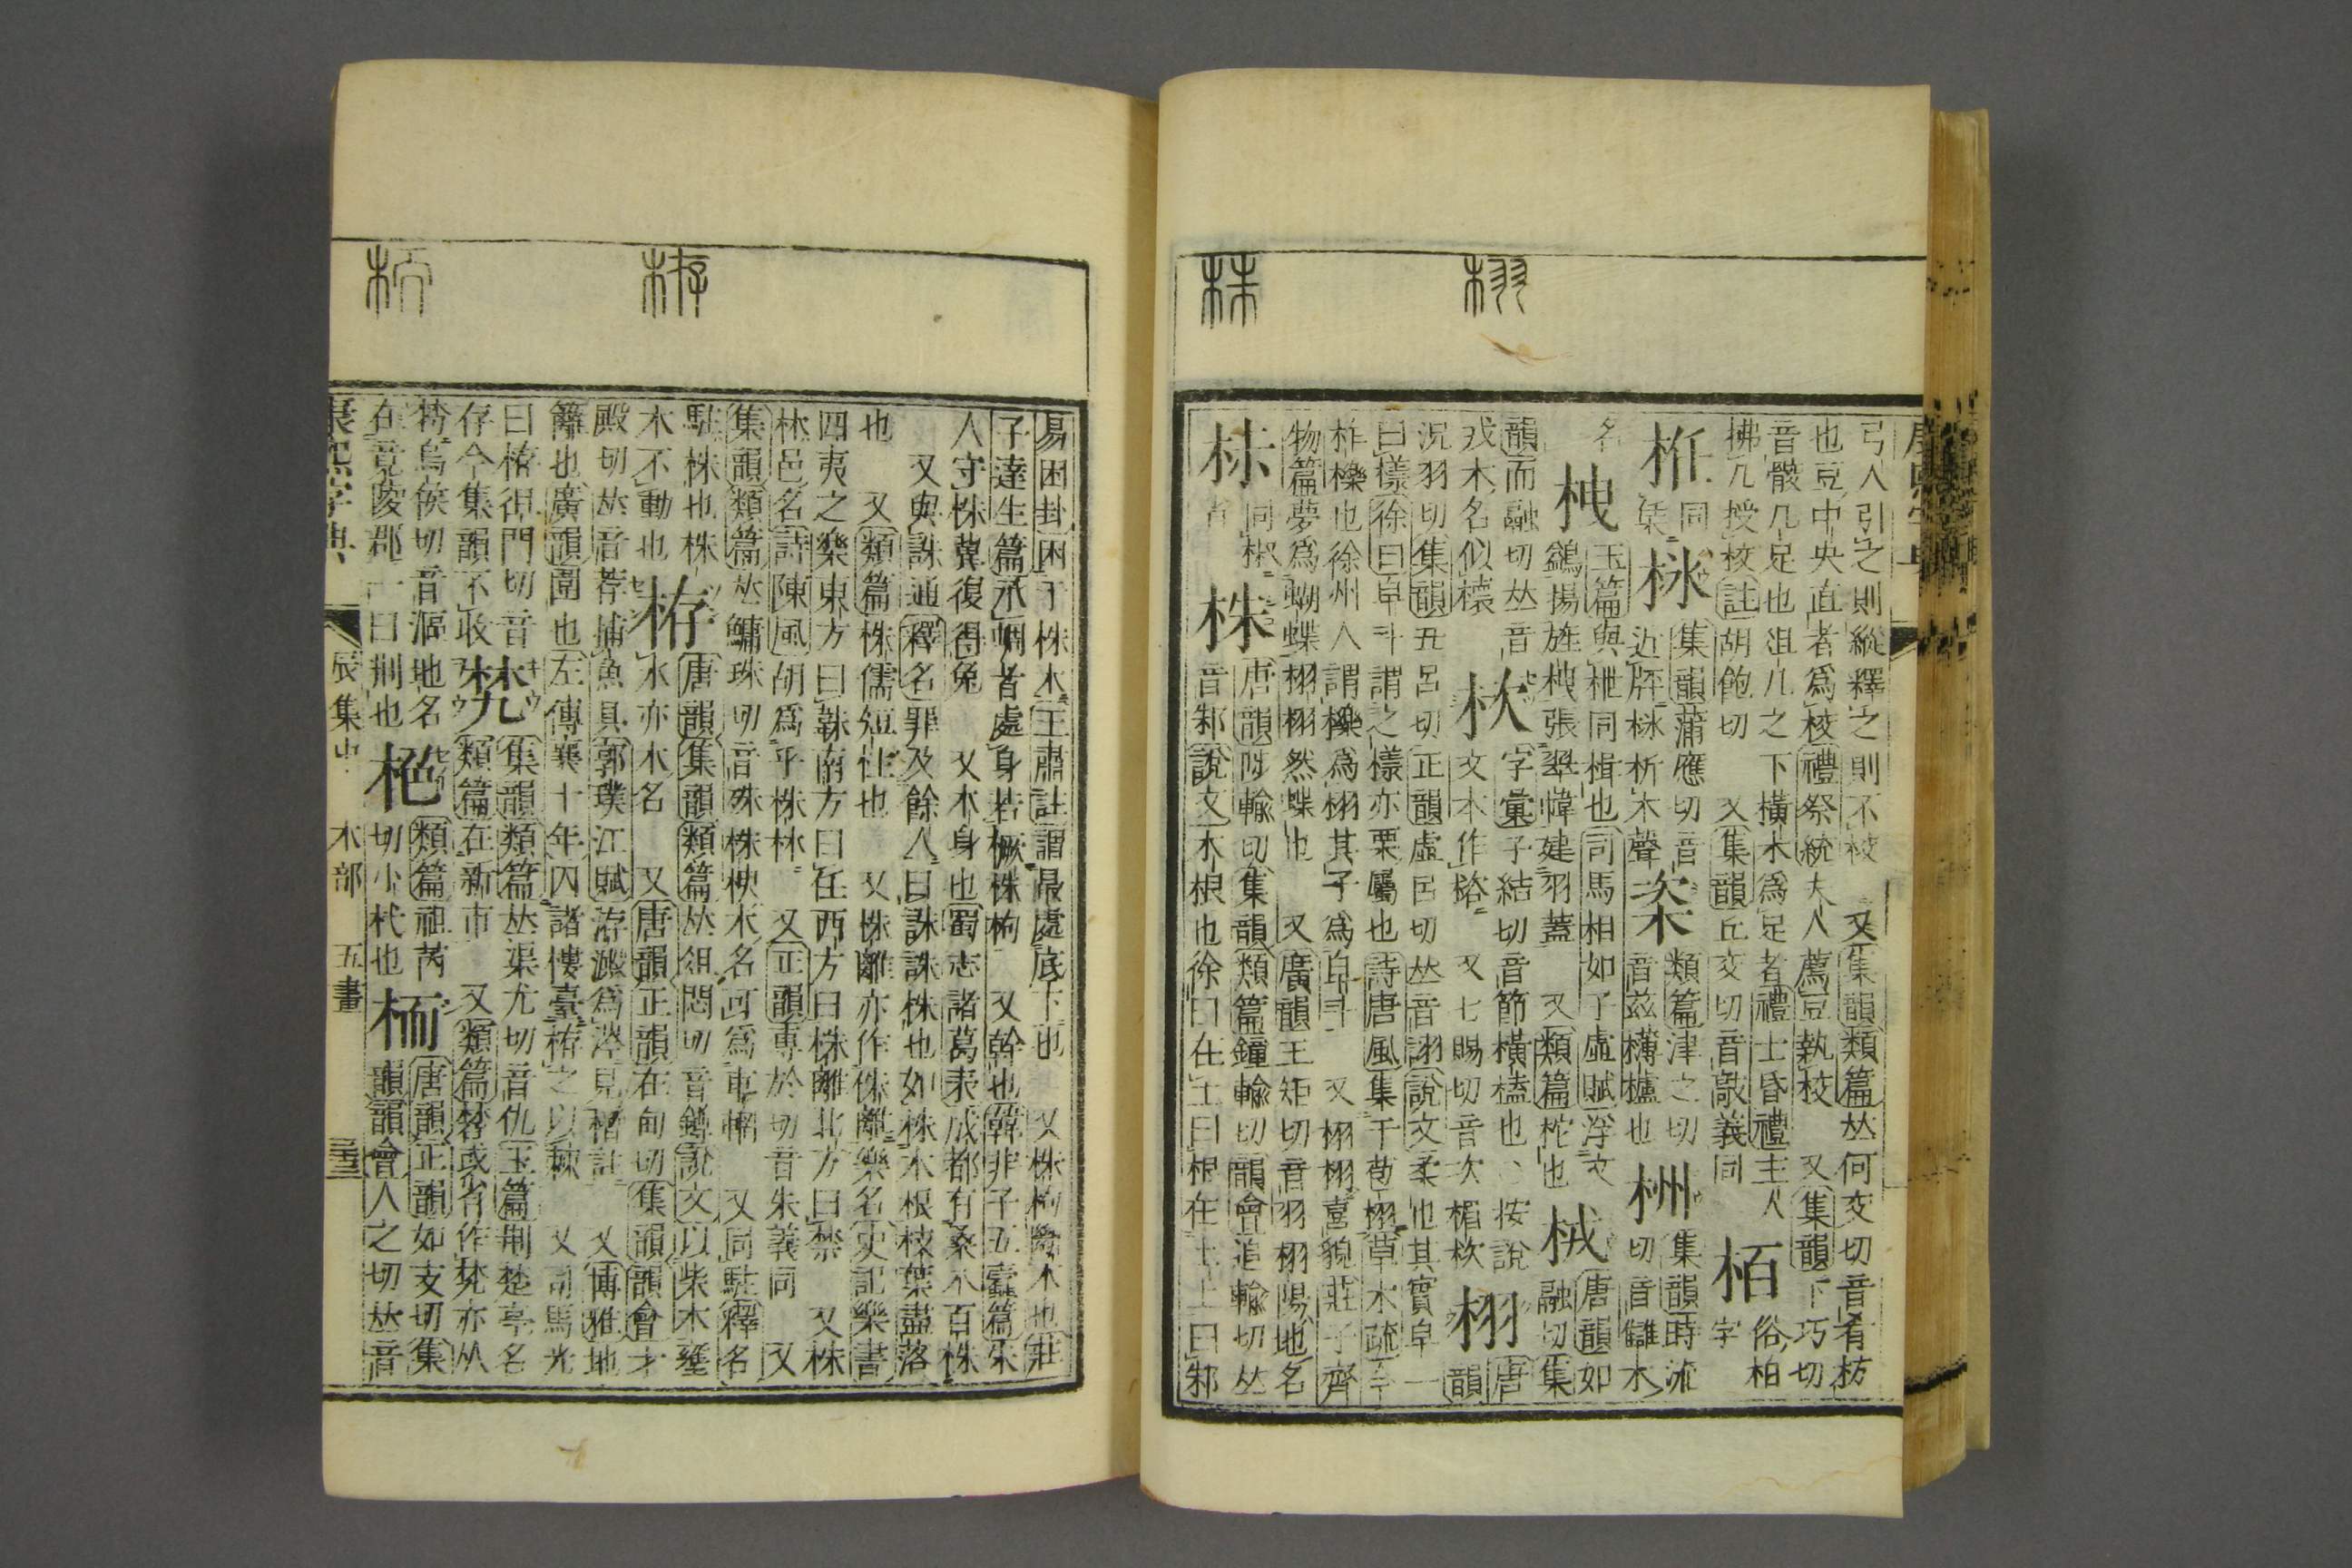 栩
株
弓人引之則縱釋之則不校 又集韻類篇𠀤何交切音肴枝
也豆中央直者爲校禮祭統夫人薦豆執校 又集韻下巧切
音骸几足也俎几之下橫木爲足者禮士昏禮主人
拂几授校註胡飽切 又集韻丘交切音敲義同
栢
俗柏字
同
桀
集韻蒲應切音
類篇津之切
音兹欂櫨也
集韻時流切音讎木
名
玉篇與枻同楫也司馬相如子虛賦浮文
鷁揚旌栧張翠幃建羽蓋 又類篇柁也
栧
栨
栩
唐韻如融切集
韻而融切𠀤音
戎木名似檍
字彙子結切音節欂櫨也 按說
文本作格 又七賜切音次楣栨
唐韻
況羽切集韻五呂切正韻虛呂切𠀤音詡說文柔也其實皁一
曰樣徐曰皁斗謂之樣亦栗屬也詩唐風集于苞栩草木疏
柞櫟也徐州人謂櫟爲栩其子爲皁斗 又栩栩喜貌莊子齊
物篇夢爲蝴蝶栩栩然蝶也 又廣韻王矩切音羽栩陽地名
同椒
株
唐韻陟輸切集韻類篇鐘輸切韻會追輸切𠀤
音邾說文木根也徐曰在土曰根在土上曰邾
栫
易困卦困于株木王肅註謂最處底下也 又株枸鑒木也莊
子達生篇承蜩者處身若橛株枸 又幹也韓非子五蠹篇宋
人守株冀復得兔 又木身也蜀志諸葛表成都有桑木百株
又與誅通釋名罪及餘人曰誅誅株也如株木根枝葉盡落
也 又類篇株儒短柱也 又株離亦作侏離樂名史記樂書
四夷之樂東方曰韎南方曰任西方曰株離北方曰禁 又株
林邑名詩陳風胡爲乎株林 又正韻專於切音朱義同 又
集韻類篇𠀤鱅珠切音殊株栧木名可爲車輞 又同駐釋名
駐株也株木不動也
栫
唐韻集韻類篇𠀤徂悶切音鐏說文以柴木壅
水亦木名 又唐韻正韻在甸切集韻韻會才
殿切𠀤音荐捕魚具郭璞江賦栫澱爲涔見橧註 又博雅地
籬也廣韻圍也左傳襄十年囚諸樓臺栫之以棘 又司馬光
曰栫徂門切音
存今集韻不收
梵
集韻類篇𠀤渠尤切音仇玉篇荆楚亭名
類篇在新市 又類篇
地名
在竟陵郡一曰荆也
栬
類篇祖芮
切小杙也
栭
唐韻正韻如支切集
韻韻會人之切𠀤音
康熙字典
辰集中
木部
五畫